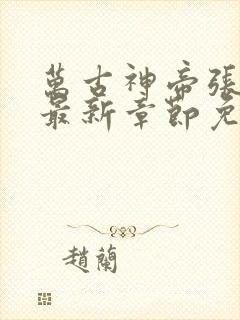 萬古神帝張
最新章節免
趙蘭